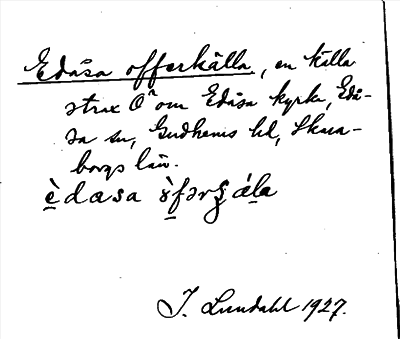 Edåsa offerkälla, en källa
strax O om Edåsa kyrka, Edå-
sa sn, Gudhems hd, Skara-
borgs län.
èdasa
I. Lundahl 1927.